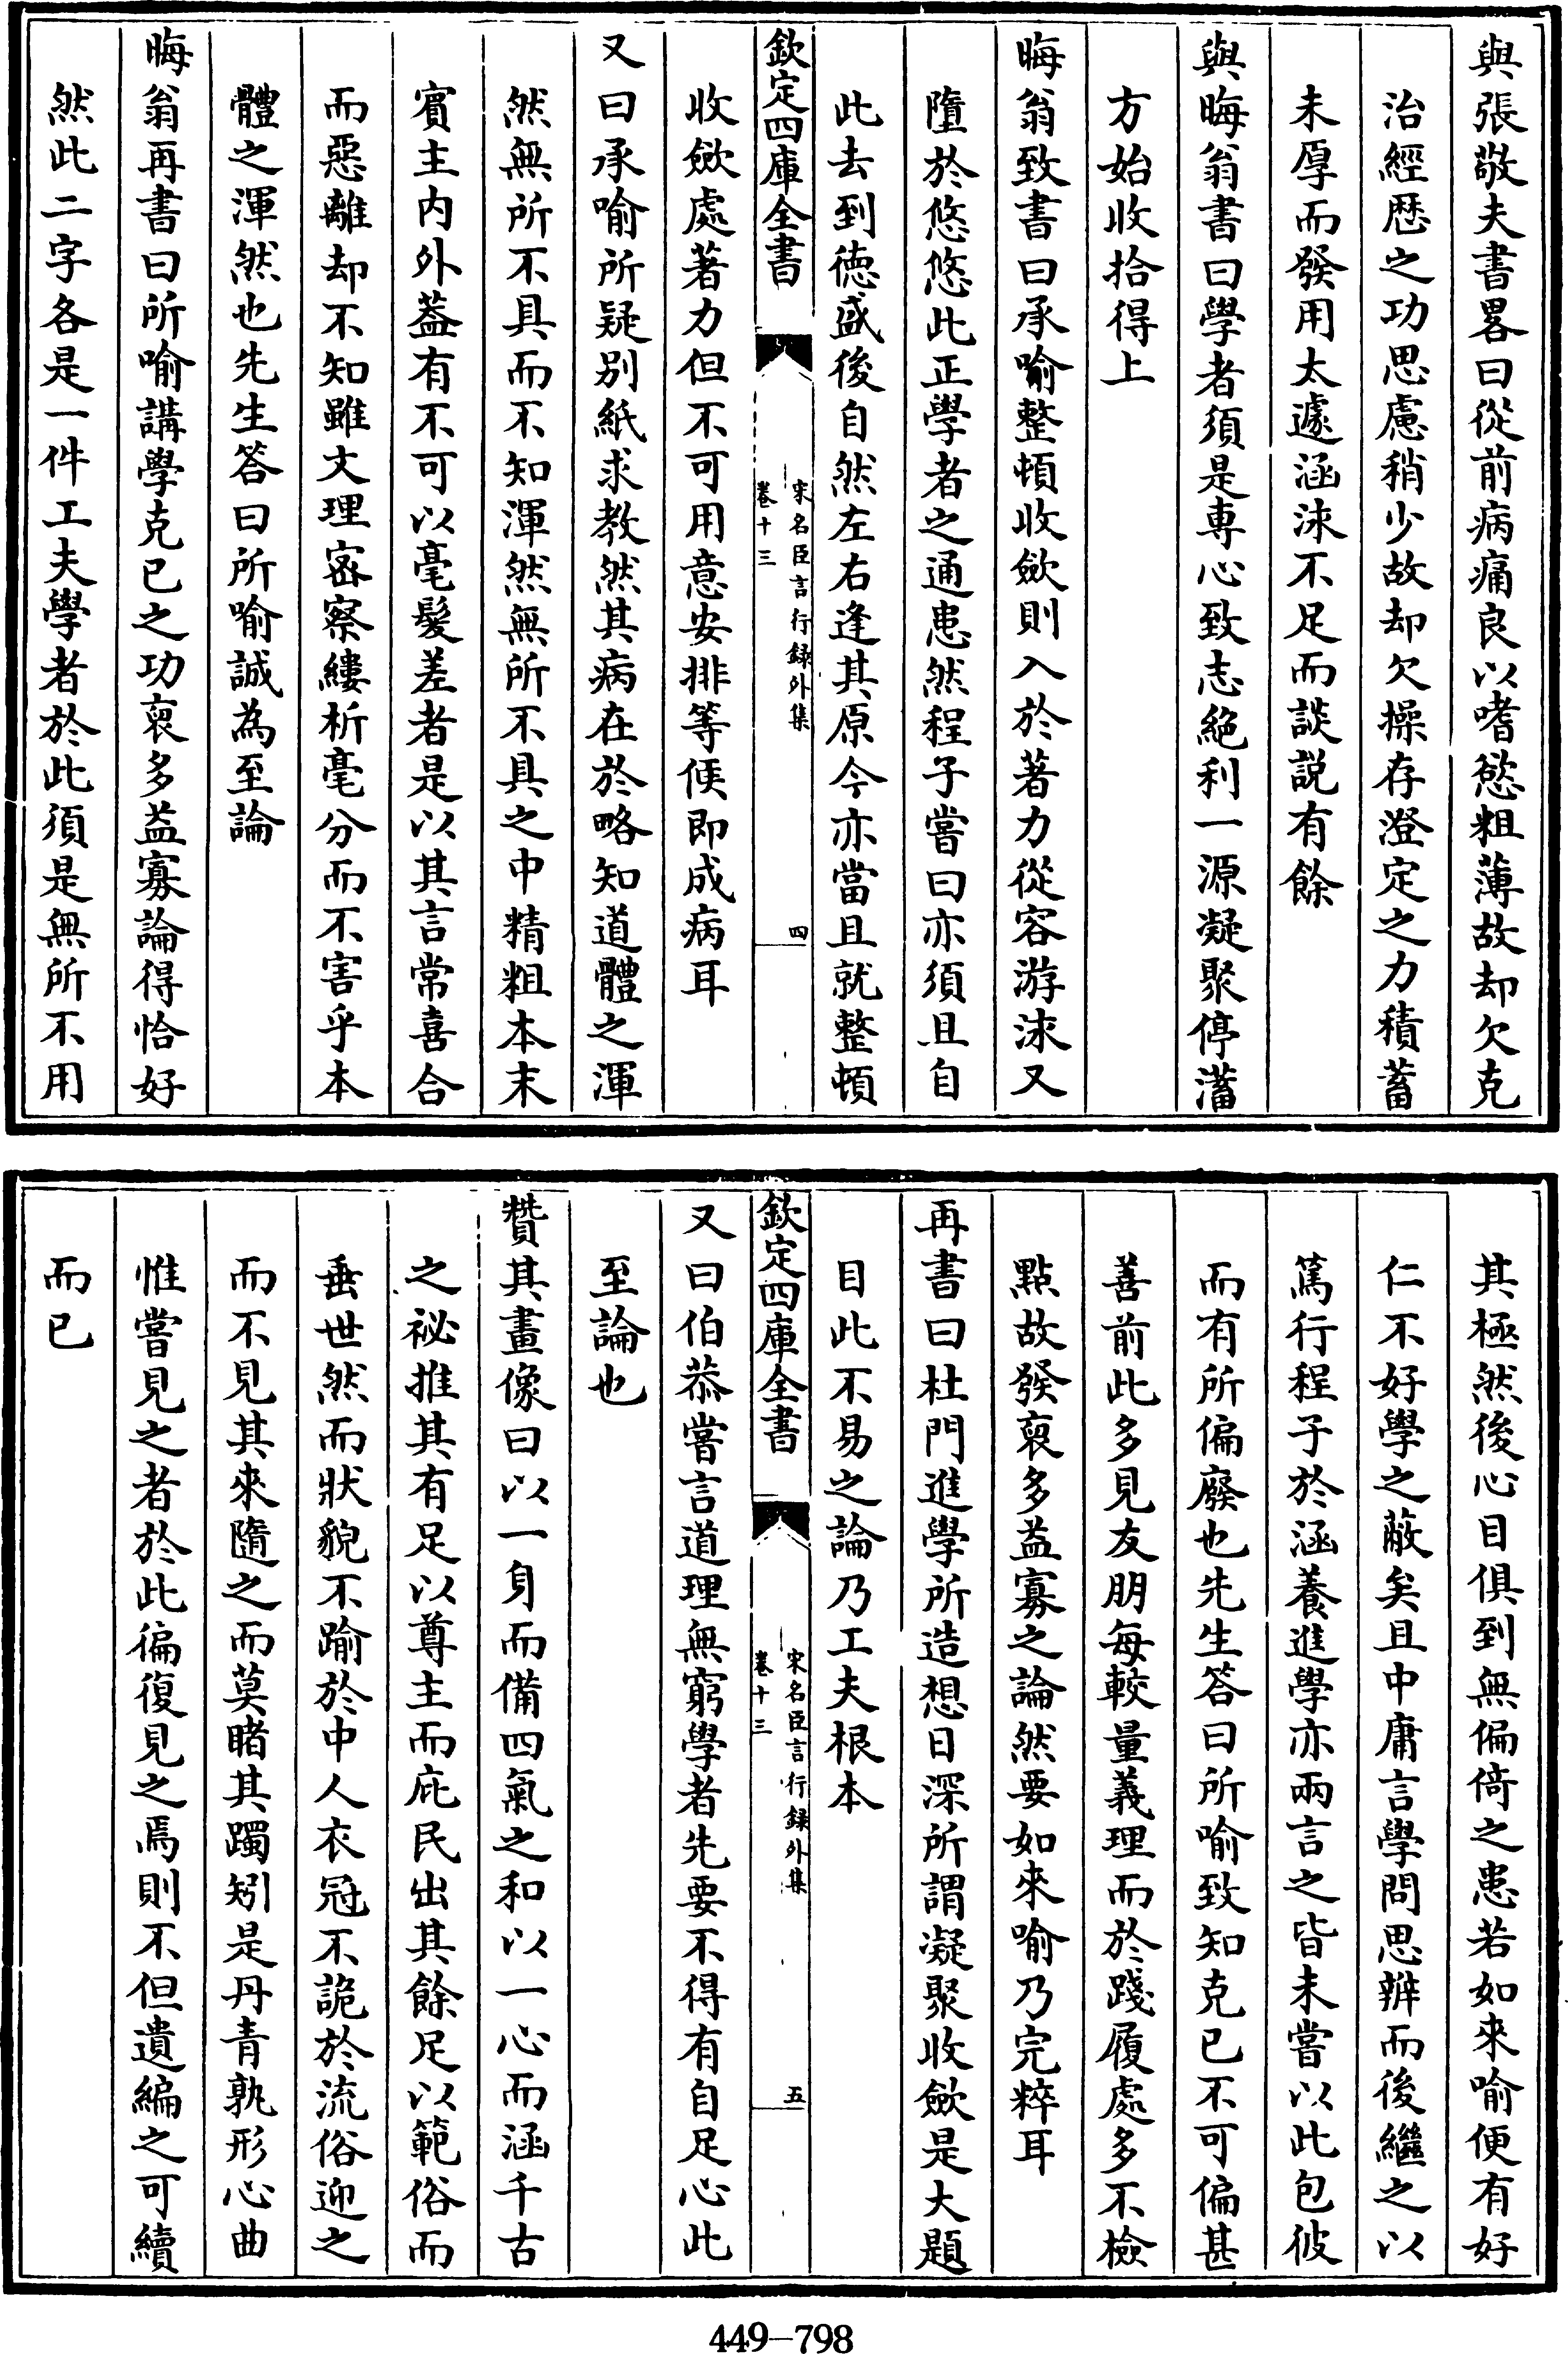 與張敬夫書畧曰從前病痛良以嗜慾粗薄故却欠克
治經歴之功思慮稍少故却欠操存澄定之力積蓄
未厚而發用太遽涵泳不足而談説有餘
與晦翁書曰學者須是専心致志絶利一源凝聚停滀
方始收拾得上
晦翁致書曰承喻整頓收斂則入於著力從容游泳又
墮於悠悠此正學者之通患然程子嘗曰亦須且自
此去到徳盛後自然左右逢其原今亦當且就整頓
欽定四庫全書
宋名臣言行録外集
卷十三
四
收斂處著力但不可用意安排等候即成病耳
又曰承喻所疑別紙求教然其病在於略知道體之渾
然無所不具而不知渾然無所不具之中精粗本末
賓主内外蓋有不可以毫髮差者是以其言常喜合
而惡離却不知雖文理宻察縷析毫分而不害乎本
體之渾然也先生答曰所喻誠為至論
晦翁再書曰所喻講學克已之功裒多益寡論得恰好
然此二字各是一件工夫學者於此須是無所不用
其極然後心目俱到無偏倚之患若如來喻便有好
仁不好學之蔽矣且中庸言學問思辨而後繼之以
篤行程子於涵養進學亦兩言之皆未嘗以此包彼
而有所偏廢也先生答曰所喻致知克已不可偏甚
善前此多見友朋每較量義理而於踐履處多不檢
點故發裒多益寡之論然要如來喻乃完粹耳
再書曰杜門進學所造想日深所謂凝聚收斂是大題
目此不易之論乃工夫根本
欽定四庫全書
宋名臣言行録外集
卷十三
五
又曰伯恭嘗言道理無窮學者先要不得有自足心此
至論也
贊其畫像曰以一身而備四氣之和以一心而涵千古
之祕推其有足以尊主而庇民出其餘足以範俗而
垂世然而狀貌不踰於中人衣冠不詭於流俗迎之
而不見其來隨之而莫睹其躅矧是丹青孰形心曲
惟嘗見之者於此徧復見之焉則不但遺編之可續
而已
449-798